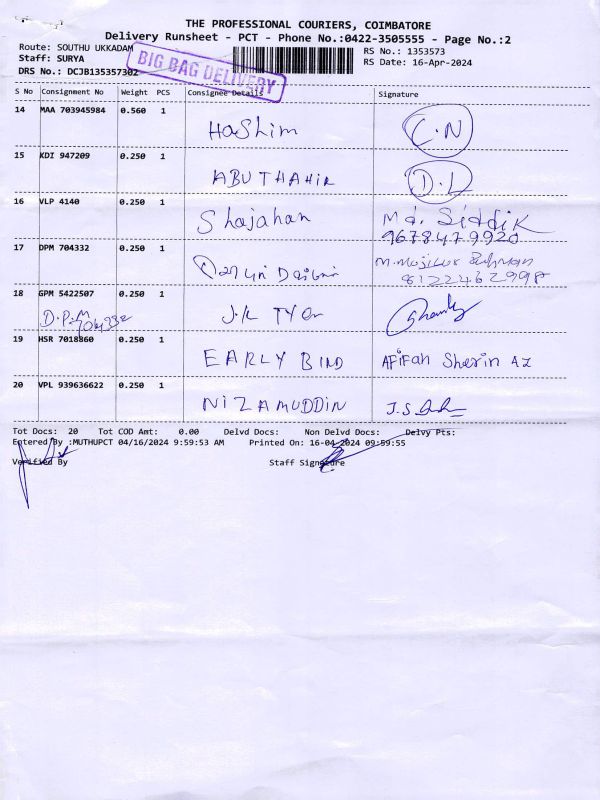 THE PROFESSIONAL COURIERS, COIMBATORE
Delivery Runsheet - PCT - Phone No.:0422-3505555 - Page No.:2
Route: SOUTHU UKKADAM
RS No.: 1353573
Staff: SURYA
RS Date: 16-Apr-2024
DRS No.: DCJB135357302
BIG BAG DELIVERY
S No Consignment No Weight PCS Consignee Details Signature
14 MAA 703945984 0.560 1 Hashim C.N
15 KDI 947209 0.250 1 ABUTHAHIR D.L
16 VLP 4140 0.250 1 Shajahan Md. Siddik
9678479920
17 DPM 704332 0.250 1
8122462998
18 GPM 5422507 0.250 1 J.K TYer
D.P.M 704332
19 HSR 7018860 0.250 1 EARLY BIND AFiFah Sherin AZ
20 VPL 939636622 0.250 1 NIZAMUDDIN
Tot Docs: 20 Tot COD Amt: 0.00 Delvd Docs: Non Delvd Docs: Delvy Pts:
Entered By :MUTHUPCT 04/16/2024 9:59:53 AM Printed On: 16-04-2024 09:59:55
Verified By Staff Signature